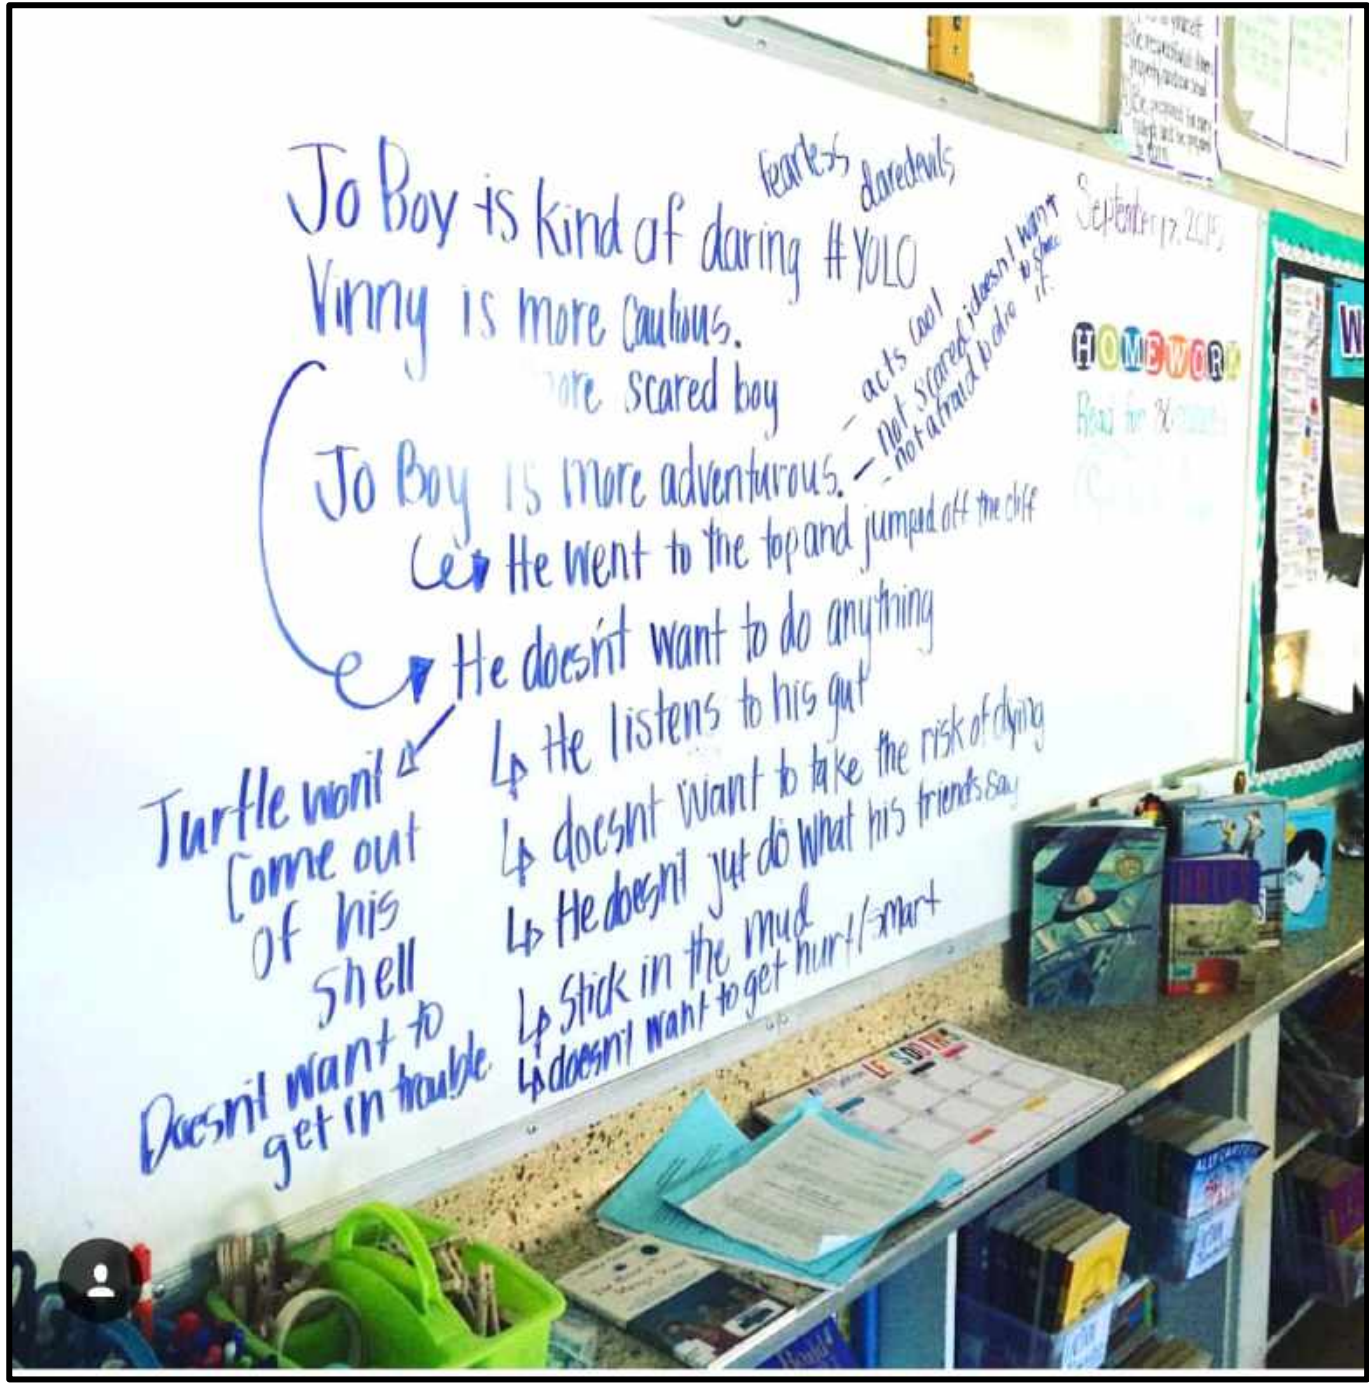 fearless daredevils
Jo Boy is kind of daring #YOLO
Vinny is more cautious.
scared boy
Jo Boy is more adventurous.
- acts cool
- not scared; doesn't want to show it.
- not afraid to die
He went to the top and jumped off the cliff
He doesn't want to do anything
↳ He listens to his gut
↳ doesnt want to take the risk of dying
↳ He doesn't jut do what his friends say
↳ Stick in the mud
↳ doesn't want to get hurt/smart
Turtle wont
come out
of his
shell
Doesn't want to
get in trouble.
September 17, 2015
HOMEWORK
Read for 30